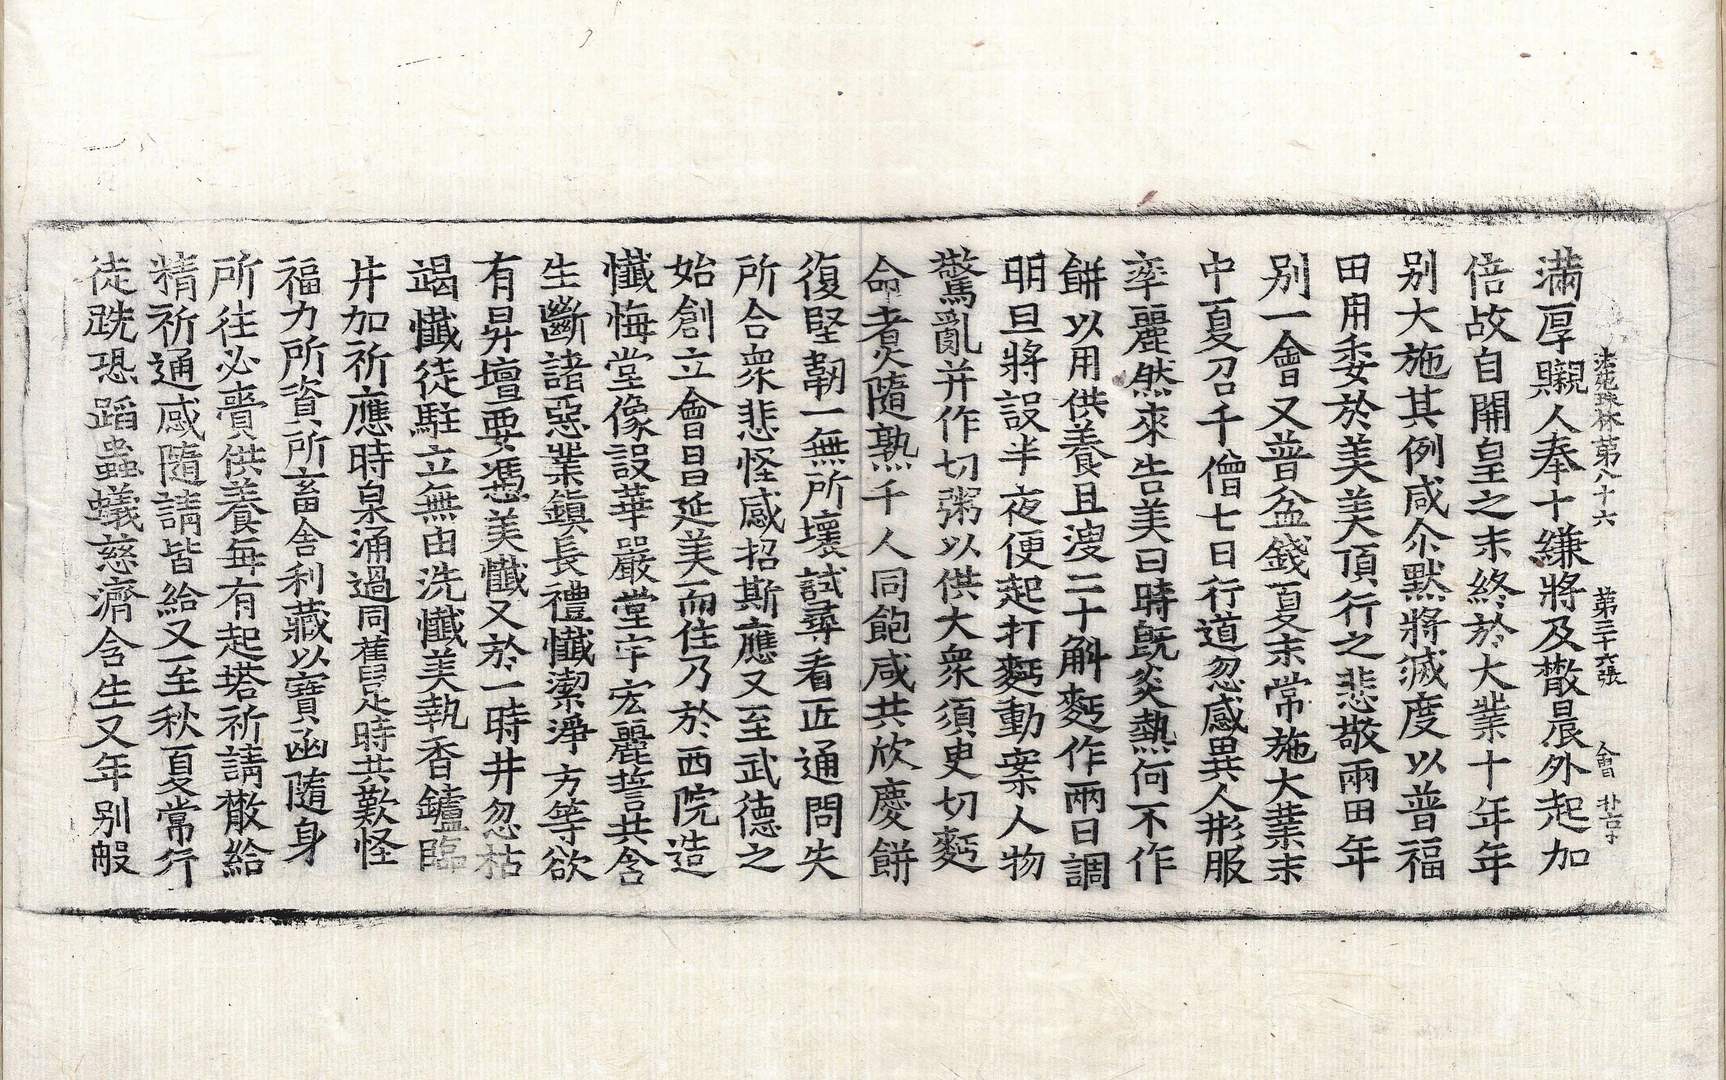 法苑珠林第八十六　第三十六張　會
滿厚䞋人奉十縑將及散晨外起加
倍故自開皇之末終於大業十年年
別大施其例咸尒默將滅度以普福
田用委於美美頂行之悲敬兩田年
別一會又普盆錢夏末常施大業末
中夏召千僧七日行道忽感異人形服
率麗然來告美曰時既炎熱何不作
餅以用供養且溲二十斛麪作兩日調
明旦將設半夜便起打麪動案人物
驚亂并作切粥以供大衆須更切麪
命煮火隨熟千人同飽咸共欣慶餅
復堅韌一無所壞試尋看匠通問失
所合衆悲怪感招斯應又至武德之
始創立會昌延美而住乃於西院造
懺悔堂像設華嚴堂宇宏麗誓共含
生斷諸惡業鎮長禮懺潔淨方等欲
有昇壇要憑美懺又於一時井忽枯
竭懺徒駐立無由洗懺美執香鑪臨
井加祈應時泉涌過同舊足時共歎怪
福力所資所畜舍利藏以寶函隨身
所往必賷供養每有起塔祈請散給
精祈通感隨請皆給又至秋夏常行
徒跣恐蹈蟲蟻慈濟含生又年別般